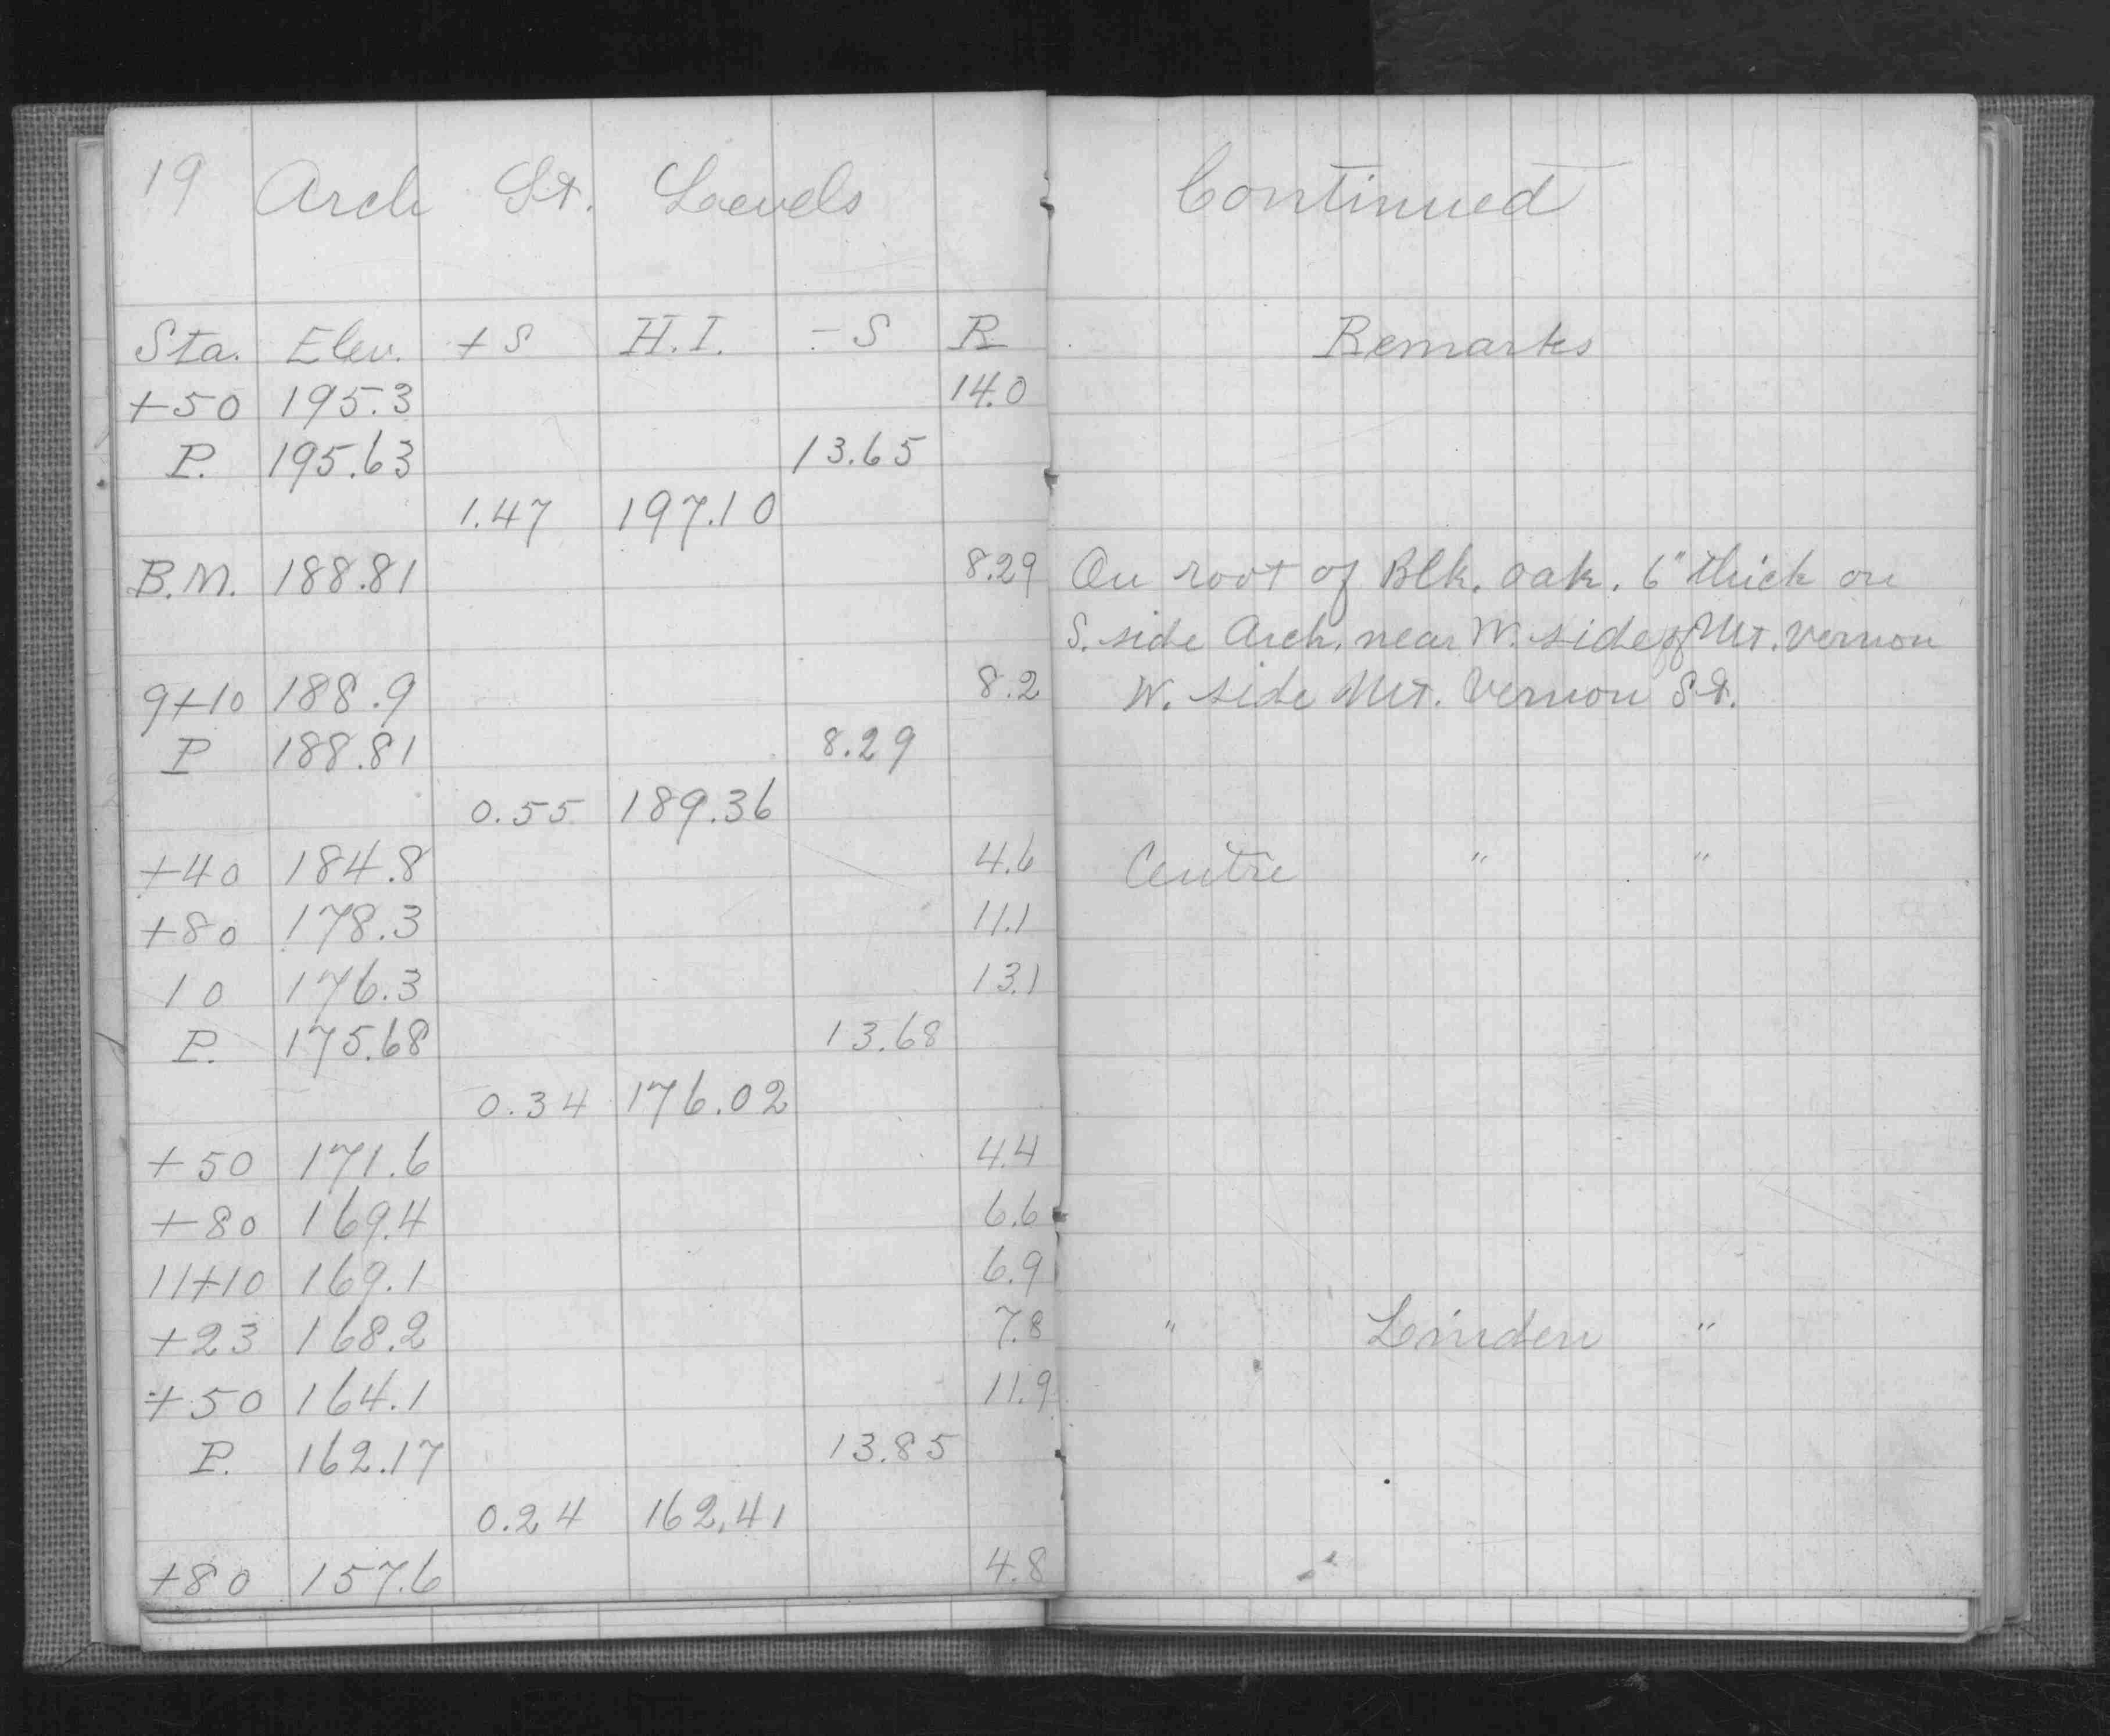 19 Arch St. Levels Continued
Sta. Elev. + S H.I. - S R Remarks
+50 195.3 14.0
P. 195.63 13.65
1.47 197.10
B.M. 188.81 8.29 On root of Blk. oak. 6" thick on
S. side Arch. near W. side of Mt. Vernon
9+10 188.9 8.2 W. side Mt. Vernon St.
P 188.81 8.29
0.55 189.36
+40 184.8 4.6 Centre " "
+80 178.3 11.1
10 176.3 13.1
P. 175.68 13.68
0.34 176.02
+50 171.6 4.4
+80 169.4 6.6
11+10 169.1 6.9
+23 168.2 7.8 " Linden "
+50 164.1 11.9
P. 162.17 13.85
0.24 162.41
+80 157.6 4.8